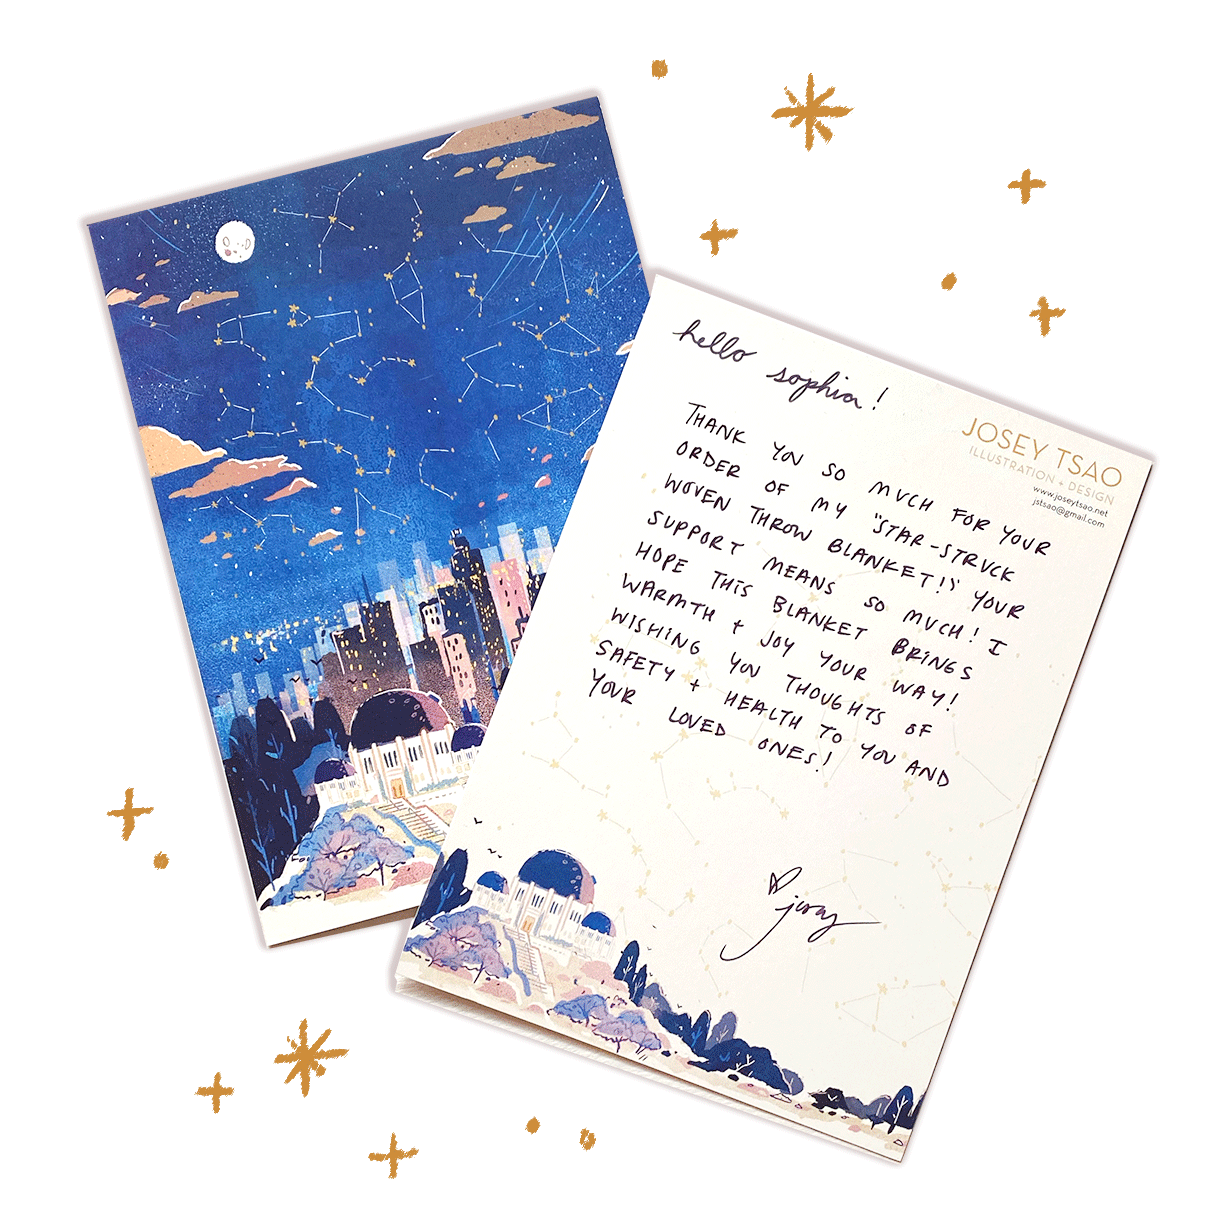 hello sophia!
JOSEY TSAO
ILLUSTRATION + DESIGN
www.joseytsao.net
jstsao@gmail.com
THANK YOU SO MUCH FOR YOUR
ORDER OF MY "STAR-STRUCK
WOVEN THROW BLANKET!" YOUR
SUPPORT MEANS SO MUCH! I
HOPE THIS BLANKET BRINGS
WARMTH + JOY YOUR WAY!
WISHING YOU THOUGHTS OF
SAFETY + HEALTH TO YOU AND
YOUR LOVED ONES!
josey